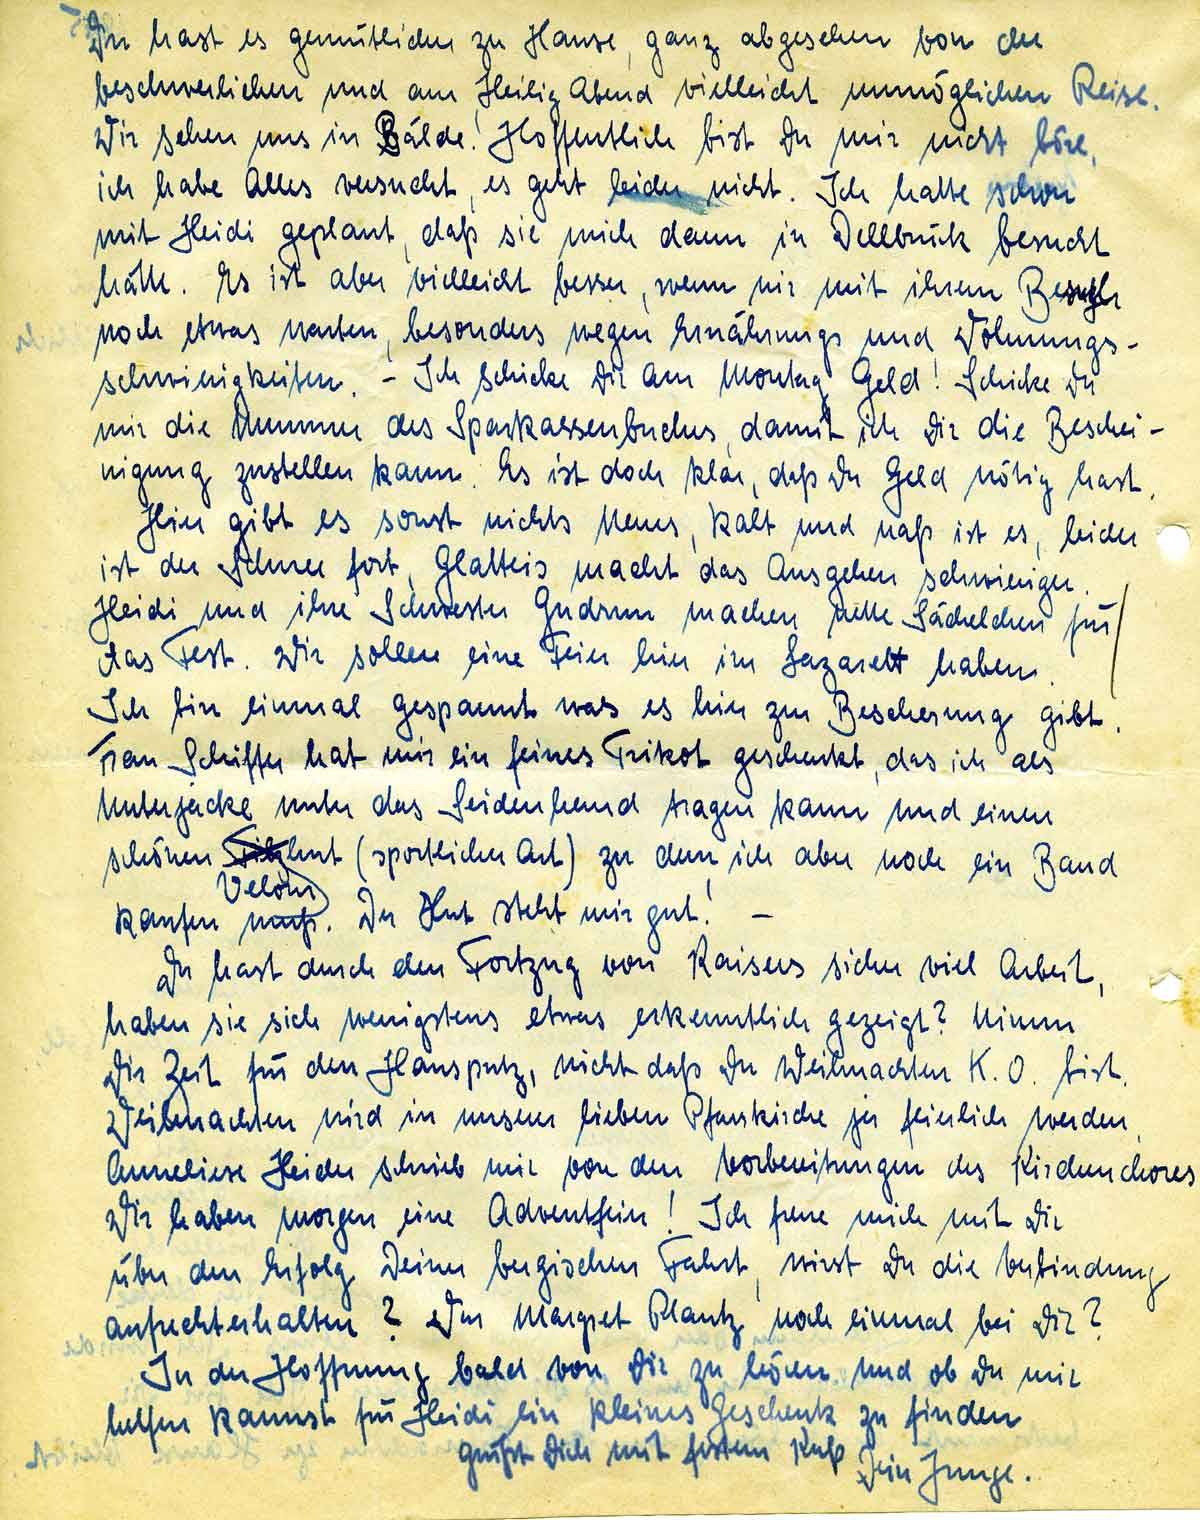 Du hast es gemütlicher zu Hause, ganz abgesehen von der
beschwerlichen und am Heilig Abend vielleicht unmöglichen Reise.
Wir sehen uns in Bälde! Hoffentlich bist Du mir nicht böse,
ich habe Alles versucht, es geht leider nicht. Ich hatte schon
mit Heidi geplant, daß sie mich dann in Dellbrück besucht
hätte. Es ist aber vielleicht besser, wenn wir mit ihrem Besuch
noch etwas warten, besonders wegen Ernährungs und Wohnungs-
schwierigkeiten. - Ich schicke Dir am Montag Geld! Schicke Du
mir die Nummer des Sparkassenbuches, damit ich Dir die Beschei-
nigung zustellen kann. Es ist doch klar, daß Du Geld nötig hast.
Hier gibt es sonst nichts Neues, kalt und naß ist es, leider
ist der Schnee fort, Glatteis macht das Ausgehen schwieriger.
Heidi und ihre Schwester Gudrun machen nette Sächelchen für
das Fest. Wir sollen eine Feier hier im Lazarett haben.
Ich bin einmal gespannt was es hier zur Bescherung gibt.
Frau Schiffer hat mir ein feines Trikot geschenkt, das ich als
Unterjacke unter das Seidenhemd tragen kann und einen
schönen Filzhut (sportlicher Art) zu dem ich aber noch ein Band
Velour
kaufen muß. Der Hut steht mir gut! -
Du hast durch den Fortzug von Kaisers sicher viel Arbeit,
haben sie sich wenigstens etwas erkenntlich gezeigt? Nimm
Dir Zeit für den Hausputz, nicht daß Du Weihnachten K.O. bist.
Weihnachten wird in unserer lieben Pfarrkirche ja feierlich werden,
Anneliese Heider schrieb mir von den Vorbereitungen des Kirchenchores
Wir haben morgen eine Adventfeier! Ich freue mich mit Dir
über den Erfolg Deiner bergischen Fahrt, wirst Du die Verbindung
aufrechterhalten? War Margret Plantz noch einmal bei Dir?
In der Hoffnung bald von Dir zu hören und ob Du mir
helfen kannst für Heidi ein kleines Geschenk zu finden
grüßt Dich mit festem Kuß Dein Junge.